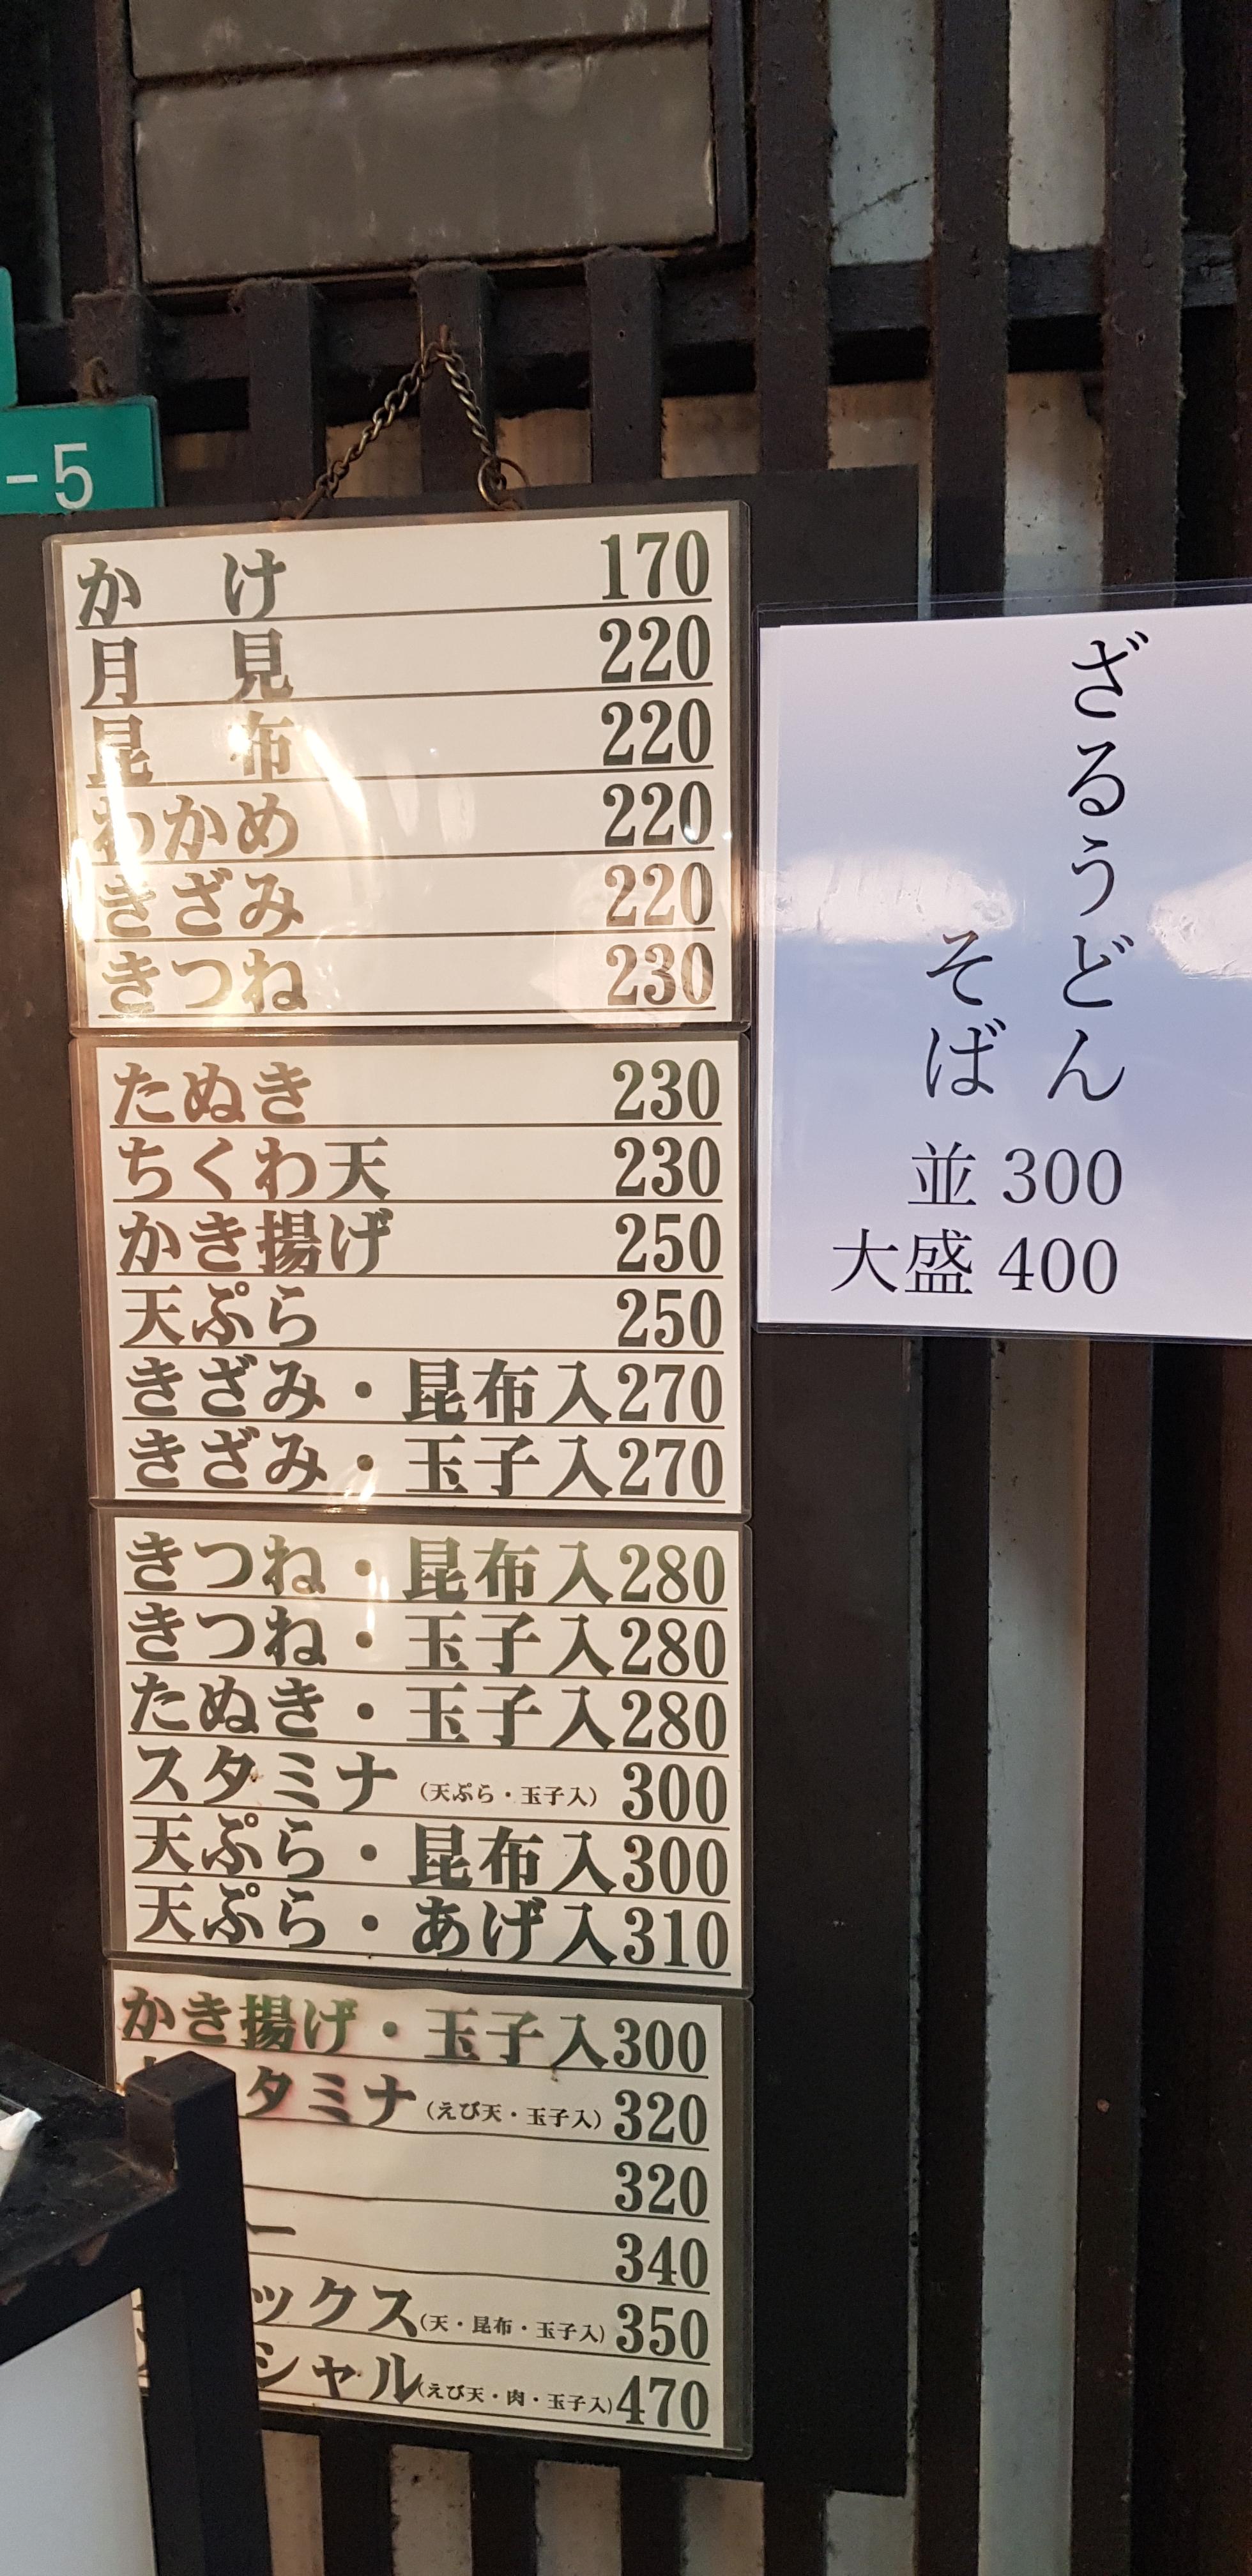 -5
かけ 170
月見 220
昆布 220
わかめ 220
きざみ 220
きつね 230
たぬき 230
ちくわ天 230
かき揚げ 250
天ぷら 250
きざみ・昆布入 270
きざみ・玉子入 270
きつね・昆布入 280
きつね・玉子入 280
たぬき・玉子入 280
スタミナ (天ぷら・玉子入) 300
天ぷら・昆布入 300
天ぷら・あげ入 310
かき揚げ・玉子入 300
タミナ (えび天・玉子入) 320
320
ー 340
ックス (天・昆布・玉子入) 350
シャル (えび天・肉・玉子入) 470
ざるうどん
そば
並 300
大盛 400